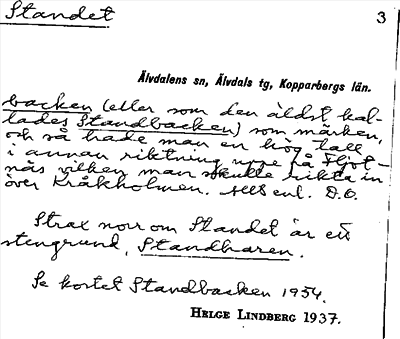 Standet
3
Älvdalens sn, Älvdals tg, Kopparbergs län.
backen (eller som den äldst. kal-
lades Standbacken) som märken,
och så hade man en hög tall
i annan riktning uppe på Fljot-
näs vilken man skulle rikta in
över Kråkholmen. Allt enl. D.O.
Strax norr om Standet är ett
stengrund, Standharen.
Se kortet Standbacken 1954.
HELGE LINDBERG 1937.